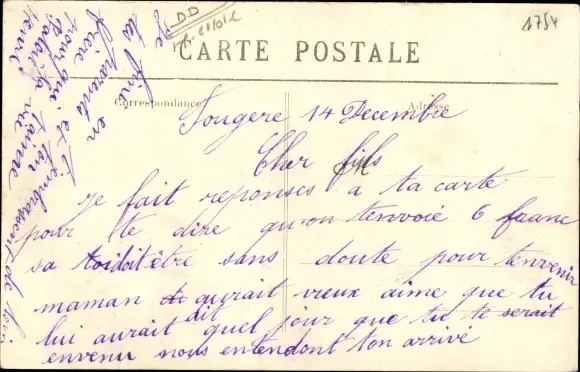 1754
DD
CARTE POSTALE
Correspondance
Adresse
Fougere 14 Decembre
Cher fils
Je fait reponses a ta carte
pour te dire qu'on tenvoie 6 franc
sa toidoit être sans doute pour tenvenir
maman aurait vieux aime que tu
lui aurait dit quel jour que tu te serait
envenu nous entendont ton arrivé
Je
tes fini en
Père parents
pour qui t'embrassent de loin
et ton
Henri